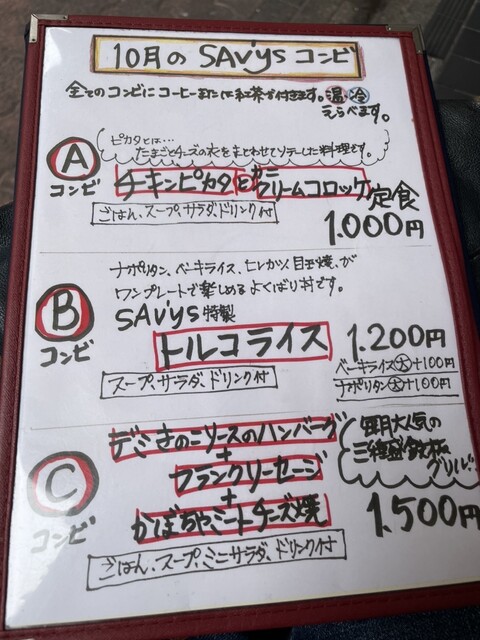 10月の SAVysコンビ
全てのコンビにコーヒーまたは紅茶が付きます。温冷
えらべます。
ピカタとは…
たまごとチーズの衣をまとわせてソテーした料理です。
A
コンビ
チキンピカタとカニクリームコロッケ定食
ごはん、スープ、サラダ、ドリンク付
1.000円
ナポリタン、ベーキライス、ヒレカツ、目玉焼、が
ワンプレートで楽しめるよくばり丼です。
B
コンビ
SAVys特製
トルコライス
1.200円
スープ、サラダ、ドリンク付
ベーキライス大+100円
ナポリタン大+100円
C
コンビ
デミきのこソースのハンバーグ
+
フランクソーセージ
+
かぼちゃミートチーズ焼
毎月大人気の
三種盛鉄板
グリル!!
1.500円
ごはん、スープ、ミニサラダ、ドリンク付